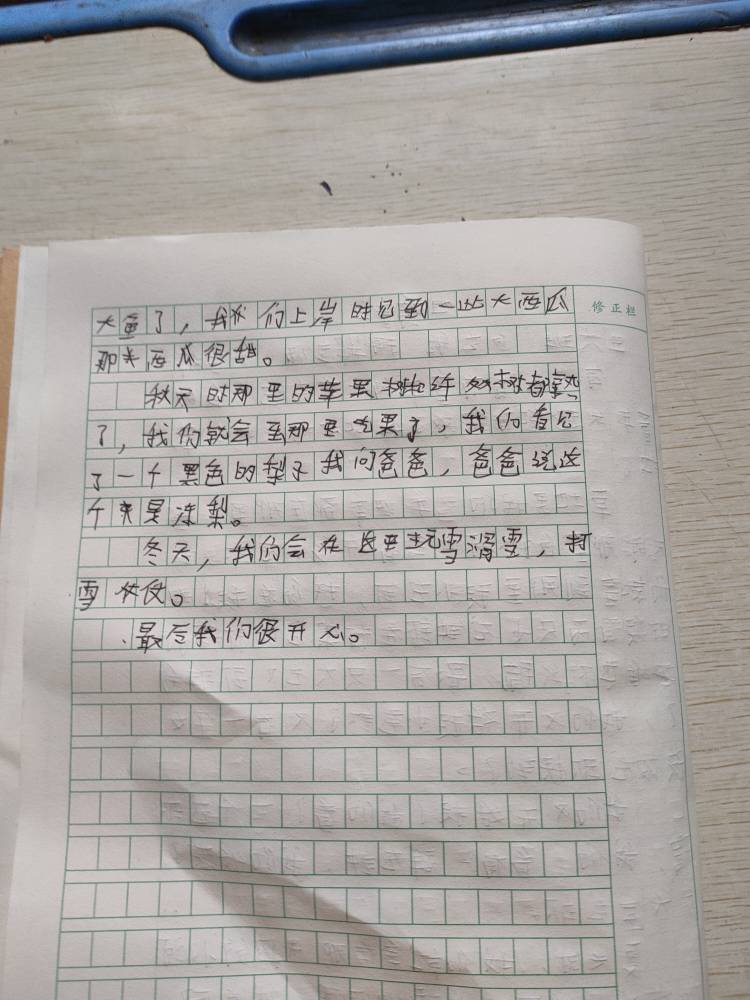 大鱼了，我们上岸时包到一些大西瓜
修正栏
那天西瓜很甜。
秋天时那里的苹果树和树都熟
了，我们就会至那里吃果了，我们看见
了一个黑色的梨子我问爸爸，爸爸说这
个夹是冻梨。
冬天，我们会在这里玩雪滑雪，打
雪仗。
最后我们很开心。